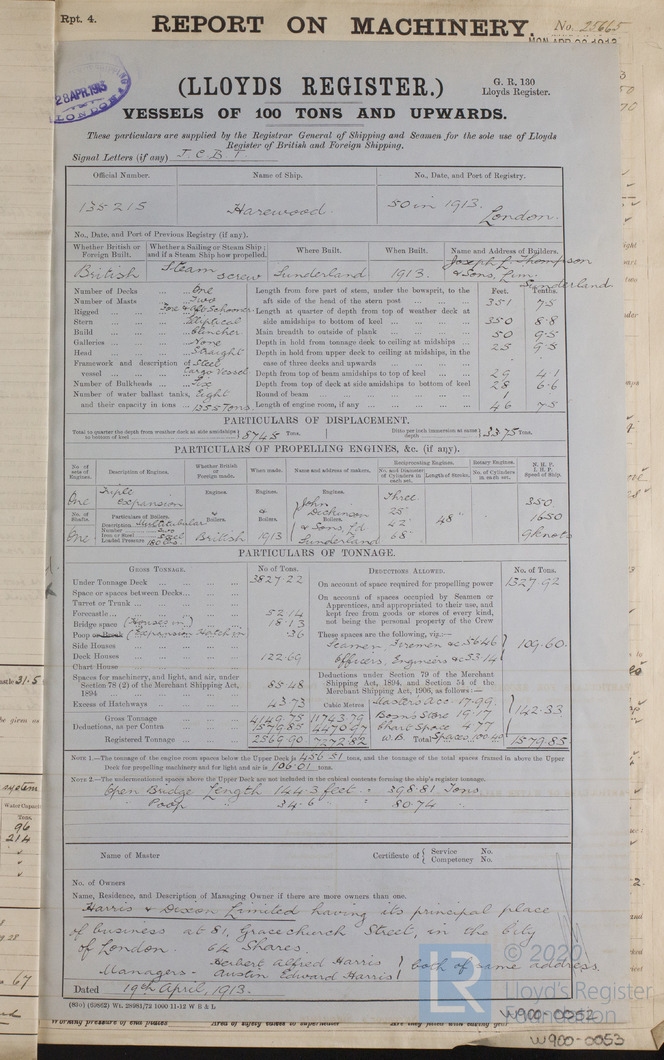 Rpt. 4.
REPORT ON MACHINERY.
No. 25665
28 APR. 1913
LONDON
(LLOYDS REGISTER.)
G. R. 130
Lloyds Register.
VESSELS OF 100 TONS AND UPWARDS.
These particulars are supplied by the Registrar General of Shipping and Seamen for the sole use of Lloyds
Register of British and Foreign Shipping.
Signal Letters (if any) J C B T
Official Number. Name of Ship. No., Date, and Port of Registry.
135215 Harewood. 50 in 1913. London.
No., Date, and Port of Previous Registry (if any).
Whether British or Foreign Built. Whether a Sailing or Steam Ship; and if a Steam Ship how propelled. Where Built. When Built. Name and Address of Builders.
British Steam screw Sunderland 1913. Joseph L. Thompson & Sons, Lim. Sunderland
Feet. Tenths.
Number of Decks ... One
Number of Masts ... Two
Rigged ... Fore & aft Schooner
Stern ... Elliptical
Build ... Clincher
Galleries ... None
Head ... Straight
Framework and description of vessel ... Steel Cargo Vessel
Number of Bulkheads ... Six
Number of water ballast tanks, Eight
and their capacity in tons ... 1355 Tons.
Length from fore part of stem, under the bowsprit, to the aft side of the head of the stern post 351 7.5
Length at quarter of depth from top of weather deck at side amidships to bottom of keel 350 8.8
Main breadth to outside of plank 50 9.5
Depth in hold from tonnage deck to ceiling at midships 25 9.5
Depth in hold from upper deck to ceiling at midships, in the case of three decks and upwards
Depth from top of beam amidships to top of keel 29 4.1
Depth from top of deck at side amidships to bottom of keel 28 6.6
Round of beam 1
Length of engine room, if any 46 7.5
PARTICULARS OF DISPLACEMENT.
Total to quarter the depth from weather deck at side amidships to bottom of keel 8745 Tons. Ditto per inch immersion at same depth 33.75 Tons.
PARTICULARS OF PROPELLING ENGINES, &c. (if any).
No. of sets of Engines. Description of Engines. Whether British or Foreign made. When made. Name and address of makers. Reciprocating Engines. No. and Diameter of Cylinders in each set. Length of Stroke. Rotary Engines. No. of Cylinders in each set. N. H. P. I. H. P. Speed of Ship.
One Triple expansion Engines. Engines. Engines. Three 350
No. of Shafts. Particulars of Boilers. & Boilers. & Boilers. John Dickinson Boilers. 25" 42" 48" 1650
Description Multitubular
Number Two
Iron or Steel Steel
Loaded Pressure 180 lbs
One British 1913 & Sons, Ld Sunderland 68" 9 knots
PARTICULARS OF TONNAGE.
GROSS TONNAGE. No of Tons. DEDUCTIONS ALLOWED. No. of Tons.
Under Tonnage Deck ... 3827.22
Space or spaces between Decks...
Turret or Trunk ...
Forecastle... 52.14
Bridge space (Houses in) 18.13
Poop or Break (Expansion Hatch in) .36
Side Houses
Deck Houses 122.69
Chart House
Spaces for machinery, and light, and air, under Section 78 (2) of the Merchant Shipping Act, 1894 85.48
Excess of Hatchways 43.73
Cubic Metres
Gross Tonnage 4149.75 11743.79
Deductions, as per Contra 1579.85 4470.97
Registered Tonnage 2569.90 7272.82
On account of space required for propelling power 1327.92
On account of spaces occupied by Seamen or Apprentices, and appropriated to their use, and kept free from goods or stores of every kind, not being the personal property of the Crew
These spaces are the following, viz.:—
Seamen Firemen &c 56.46
Officers, Engineers &c 53.14 109.60
Deductions under Section 79 of the Merchant Shipping Act, 1894, and Section 54 of the Merchant Shipping Act, 1906, as follows:—
Masters Acc. 17.99
Bosn's Store 19.17
Chart Space 4.77
W.B. Spaces 100.40 142.33
Total 1579.85
NOTE 1.—The tonnage of the engine room spaces below the Upper Deck is 456.51 tons, and the tonnage of the total spaces framed in above the Upper
Deck for propelling machinery and for light and air is 106.01 tons.
NOTE 2.—The undermentioned spaces above the Upper Deck are not included in the cubical contents forming the ship's register tonnage.
Open Bridge Length 144.3 feet = 898.81 Tons.
" Poop " 34.6 " = 80.74 "
Name of Master Certificate of { Service No. Competency No.
No. of Owners
Name, Residence, and Description of Managing Owner if there are more owners than one.
Harris & Dixon Limited having its principal place
of business at 81, Gracechurch Street, in the city
of London. 64 Shares.
Managers - Herbert Alfred Harris
Austin Edward Harris } both of same address.
Dated 19th April, 1913.
(830) (69862) Wt. 28981/72 1000 11-12 W B & L
© 2020
LR
Lloyd's Register
Foundation
W900-0052
W900-0053